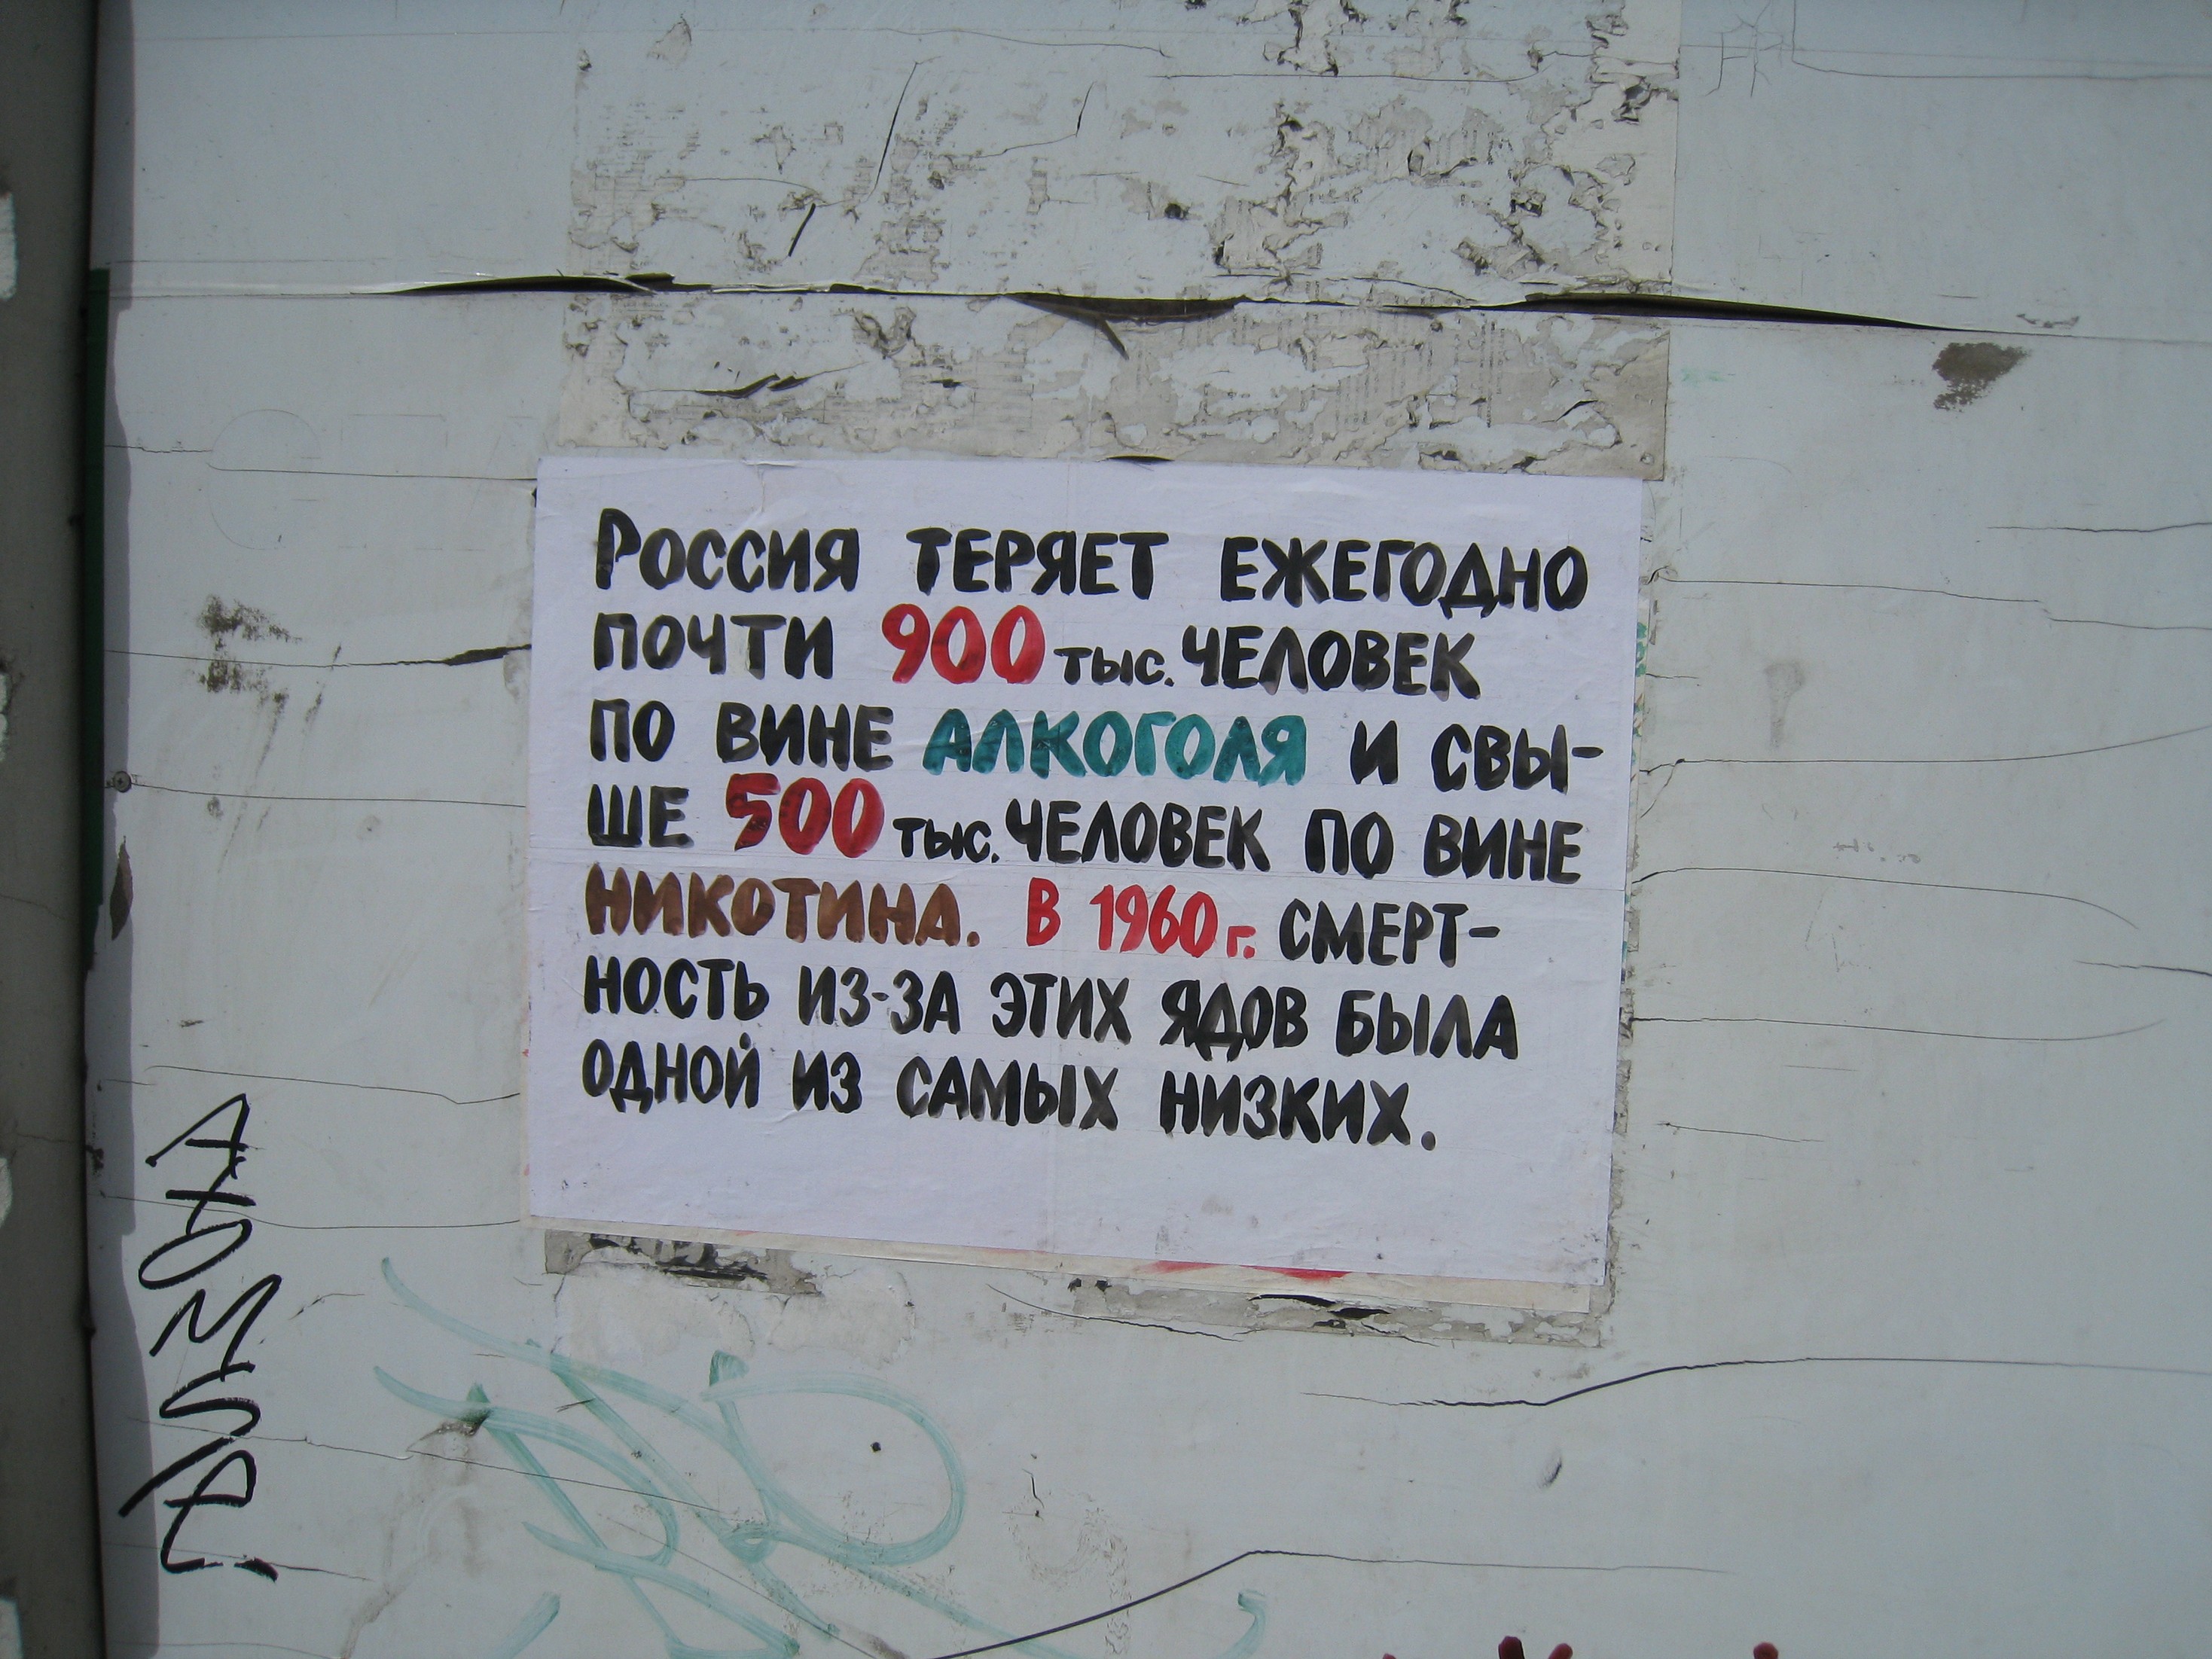 Россия теряет ежегодно
почти 900 тыс. человек
по вине алкоголя и свы-
ше 500 тыс. человек по вине
никотина. В 1960 г. смерт-
ность из-за этих ядов была
одной из самых низких.